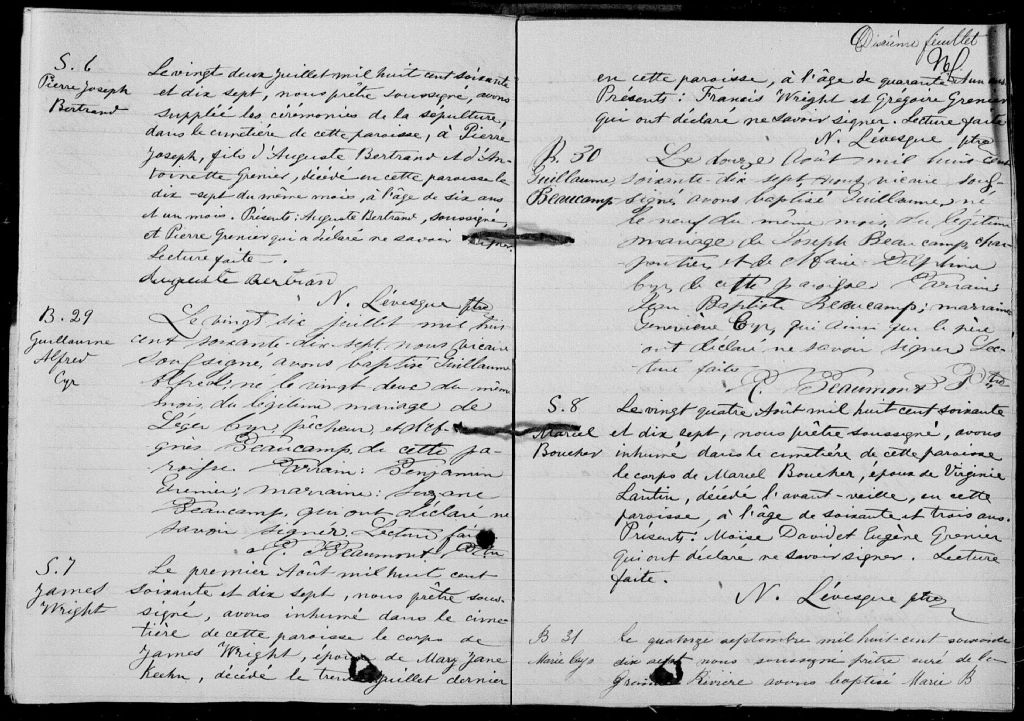 S. 6
Pierre Joseph
Bertrand
Le vingt deux Juillet mil huit cent soixante
et dix sept, nous prêtre soussigné, avons
supplée les cérémonies de la sépulture,
dans le cimetière de cette paroisse, à Pierre
Joseph, fils d'Auguste Bertrand et d'An-
toinette Grenier, décédé en cette paroisse le
dix-sept du même mois, à l'âge de six ans
et un mois. Présents: Auguste Bertrand, soussigné,
et Pierre Grenier qui a déclaré ne savoir signer.
Lecture faite.
Auguste Bertran
N. Lévesque ptre
B. 29
Guillaume
Alfred
Cyr
Le vingt six juillet mil huit
cent soixante-dix-sept, nous vicaire
soussigné, avons baptisé Guillaume
Alfred, né le vingt deux du même
mois, du légitime mariage de
Léger Cyr, pêcheur, et d'
Beaucamp, de cette pa-
roisse. Parrain: Benjamin
Grenier; marraine: Suzane
Beaucamp, qui ont déclaré ne
savoir signer. Lecture faite
Beaumont, Ptre
S. 7
James
Wright
Le premier Août mil huit cent
soixante et dix sept, nous prêtre sous-
signé, avons inhumé dans le cime-
tière de cette paroisse le corps de
James Wright, époux de Mary Jane
Keehn, décédé le trente Juillet dernier
Dixième feuillet
en cette paroisse, à l'âge de quarante et un ans.
Présents: Francis Wright et Grégoire Grenier
qui ont déclaré ne savoir signer. Lecture faite
N. Lévesque ptre
B. 30
Guillaume
Beaucamp
Le douze Août mil huit cent
soixante-dix-sept, nous vicaire sous-
signé, avons baptisé Guillaume, né
le neuf du même mois, du légitime
mariage de Joseph Beaucamp, char-
pentier, et de Marie Delphine
Cyr, de cette paroisse. Parrain:
Jean Baptiste Beaucamp; marraine:
Geneviève Cyr, qui ainsi que le père
ont déclaré ne savoir signer. Lec-
ture faite
Beaumont Ptre
S. 8
Marcel
Boucher
Le vingt quatre Août mil huit cent soixante
et dix sept, nous prêtre soussigné, avons
inhumé dans le cimetière de cette paroisse
le corps de Marcel Boucher, époux de Virginie
Lantin, décédé l'avant-veille, en cette
paroisse, à l'âge de soixante et trois ans.
Présents: Moïse David et Eugène Grenier
qui ont déclaré ne savoir signer. Lecture
faite.
N. Lévesque ptre
B 31
Marie
Le quatorze septembre mil huit-cent soixante
dix sept nous soussigné prêtre curé de la
Grande Rivière avons baptisé Marie B